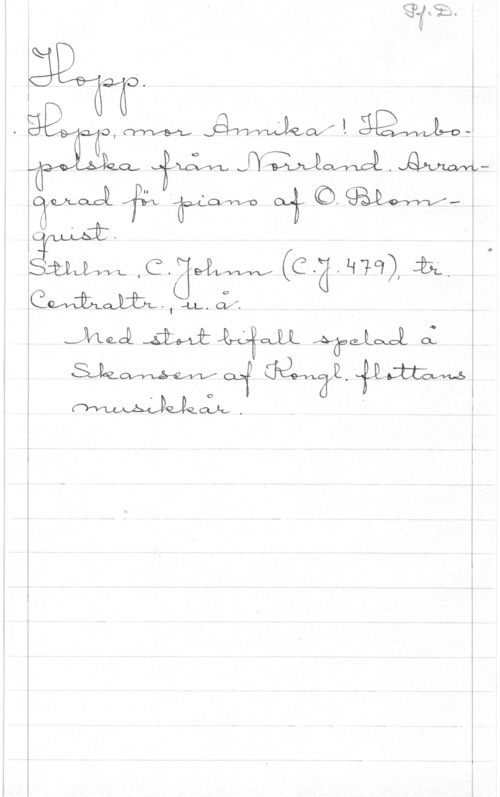 Pf. D.
Hopp.
Hopp, mor Annika! Hambo-
polska från Norrland. Arran-
gerad för piano af O. Blom-
quist.
Sthlm, C. Johnn (C.J. 479), tr.
Centraltr., u. å.
Med stort bifall spelad å
Skansen af Kongl. flottans
musikkår.